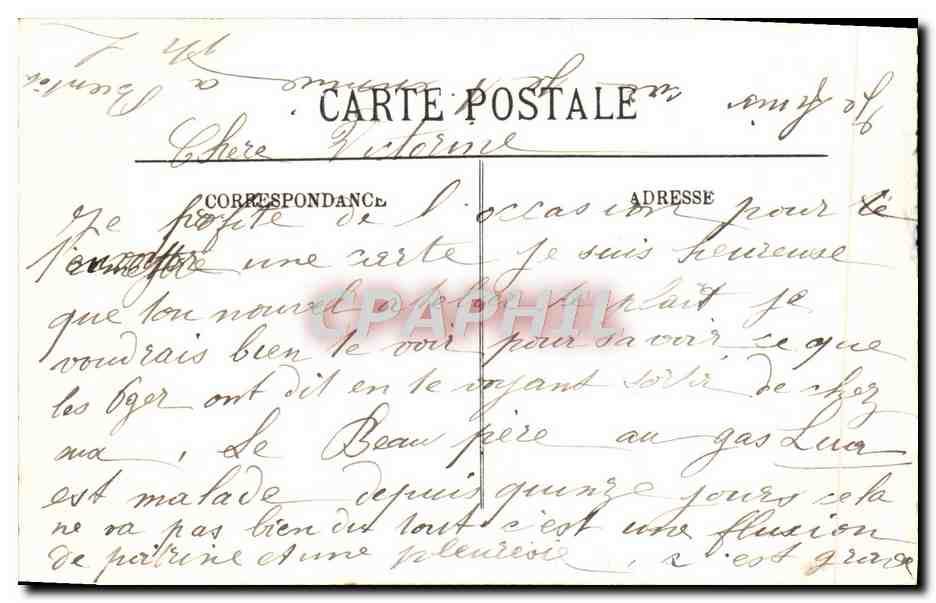 CARTE POSTALE
Chere Victorine
CORRESPONDANCE
ADRESSE
Je profite de l'occasion pour te
une carte je suis heureuse
que ton nouvel atelier te plait je
voudrais bien te voir pour savoir ce que
les Oger ont dit en te voyant sortir de chez
aux, Le Beau père au gas Luca
est malade depuis quinze jours cela
ne va pas bien du tout c'est une fluxion
de poitrine et une pleuresie, c'est grave
Je finis a Bientôt
CPAPHIL